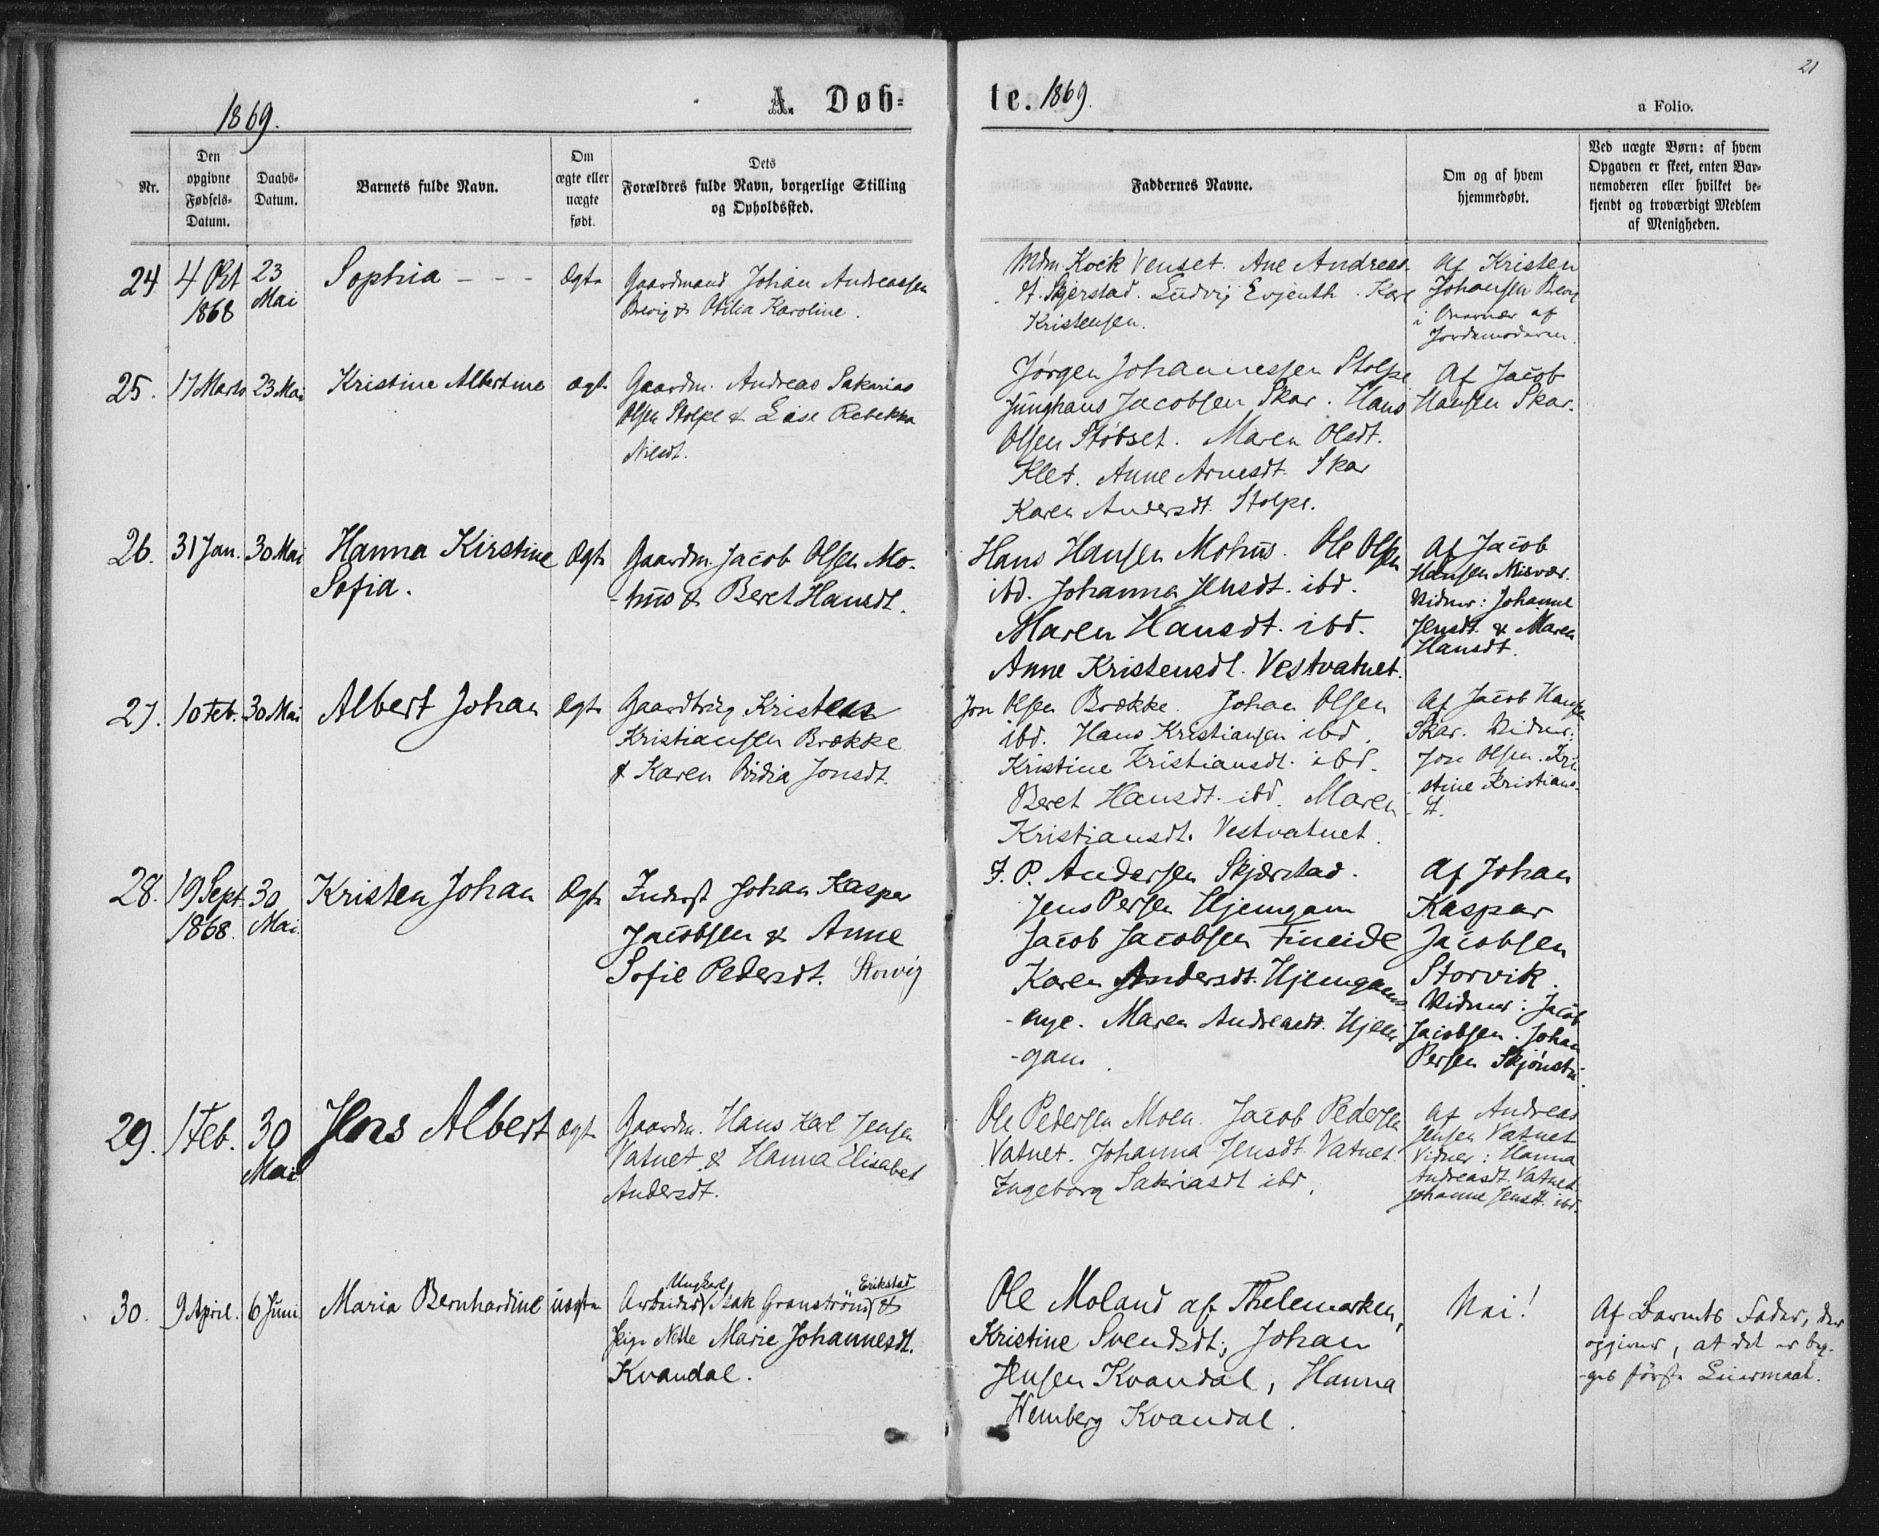 21
1869.
A. Døb-
te. 1869.
a Folio.
Nr.
Den
opgivne
Fødsels-
Datum.
Daabs-
Datum.
Barnets fulde Navn.
Om
ægte eller
uægte
født.
Dets
Forældres fulde Navn, borgerlige Stilling
og Opholdssted.
Faddernes Navne.
Om og af hvem
hjemmedøbt.
Ved uægte Børn: af hvem
Opgaven er skeet, enten Bar-
nemoderen eller hvilket be-
kjendt og troværdigt Medlem
af Menigheden.
24
4 Okt
1868
23
Mai
Sophia - - -
Ægte
Gaardmand Johan Andreassen
& Otilia Karoline.
Mdm Kock Venset. Ane Andreas-
dt. Skjerstad. Ludvig Evjenth. Karl
Kristensen.
Af Kristen
Johansen Berg
i af
Jordemoderen.
25.
17 Marts
23 Mai
Kristine Albertine
ægte
Gaardm. Andreas Sakarias
Olsen Stolpe & Lise Rebekka
Nilsdt.
Jørgen Johannessen Stolpe
Junghans Jacobsen Skar. Hans
Olsen Støbset. Maren Olsdt.
Klet. Anne Arnesdt. Skar
Karen Andersdt. Stolpe.
Af Jacob
Hansen Skar.
26.
31 Jan.
30 Mai
Hanna Kirstine
Sofia.
Ægte
Gaardm. Jacob Olsen Mo-
-hus & Beret Hansdt.
Hans Hansen Mohus. Ole Olsen
ibd. Johanna Jensdt. ibd.
Maren Hansdt. ibd.
Anne Kristensdt. Vestvatnet.
Af Jacob
Hansen Misvær.
Vidner: Johanne
Jensdt. & Maren
Hansdt.
27.
10 Feb.
30 Mai
Albert Johan
Ægte
Gaardbrug Kristen
Kristiansen Brække
& Karen Jonsdt.
Jon Olsen Brække. Johan Olsen
ibd. Hans Kristiansen ibd.
Kristine Kristiansdt. ibd.
Beret Hansdt. ibd. Maren
Kristiansdt. Vestvatnet.
Af Jacob Hansen
Skar. Vidner:
Jon Olsen. Kri-
-stine Kristians-
-dt.
28.
19 Sept
1868.
30
Mai
Kristen Johan
Ægte
Inderst Johan Kasper
Jacobsen & Anne
Sofie Pedersdt. Storvig
J. P. Andersen Skjærstad.
Jens Persen Hjemgam
Jacob Jacobsen Fineide
Karen Andersdt. Hjemgams-
-eye. Maren Andreasdt. Hjem-
-gam.
Af Johan
Kaspar
Jacobsen
Storvik.
Vidner: Jacob
Jacobsen. Johan
Persen Skjønsta.
29.
1 Feb.
30
Mai
Jens Albert
ægte
Gaardm. Hans Karl Jensen
Vatnet & Hanna Elisabet
Andersdt.
Ole Pedersen Moen. Jacob Pedersen
Vatnet. Johanna Jensdt. Vatnet.
Ingeborg Sakriasdt ibd.
Af Andreas
Jensen Vatnet
Vidner: Hanna
Andreasdt. Vatnet
Johanne Jensdt. ibd.
30.
9 April.
6 Juni.
Maria Bernhardine
uægte
Ungkarl Erikstad
Arbeider Isak Granstrøm &
Pige Marie Johannesdt.
Kvandal.
Ole Moland af Thelemarken,
Kristine Svendsdt; Johan
Jensen Kvandal, Hanna
Wemberg Kvandal.
Nei!
Af Barnets Fader, der
opgiver, at det er beg-
-ges første Leiermaal.